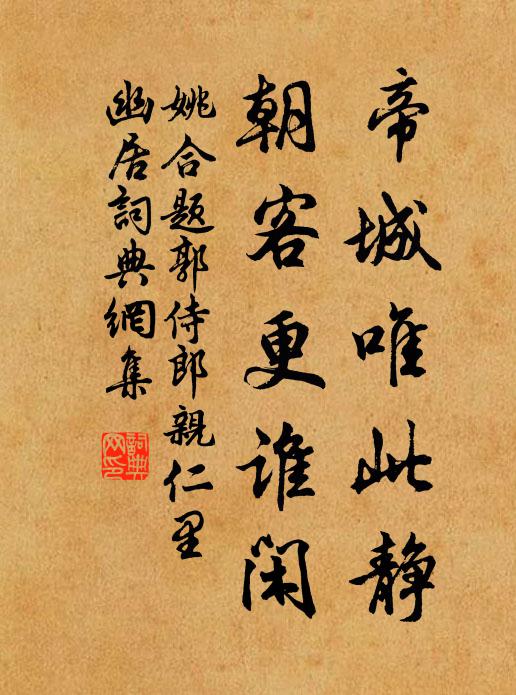 帝城唯此静
朝客更谁闲
姚合题郭侍郎親仁里
幽居詞典網集
詞典
网印